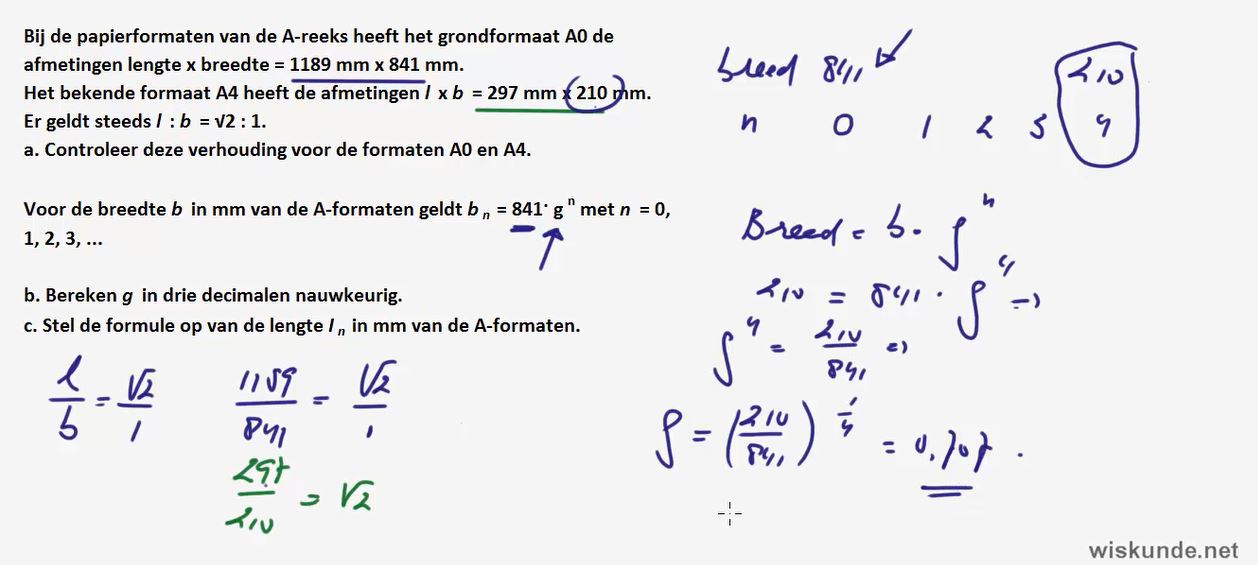 Bij de papierformaten van de A-reeks heeft het grondformaat A0 de
afmetingen lengte x breedte = 1189 mm x 841 mm.
Het bekende formaat A4 heeft de afmetingen l x b = 297 mm x 210 mm.
Er geldt steeds l : b = √2 : 1.
a. Controleer deze verhouding voor de formaten A0 en A4.
Voor de breedte b in mm van de A-formaten geldt b n = 841· g n met n = 0,
1, 2, 3, ...
b. Bereken g in drie decimalen nauwkeurig.
c. Stel de formule op van de lengte l n in mm van de A-formaten.
l/b = √2/1
1189/841 = √2/1
297/210 = √2
breed 841 210
n 0 1 2 3 4
Breed = b · g^n
210 = 841 · g^4 =>
g^4 = 210/841 =>
g = (210/841)^1/4 = 0,707.
wiskunde.net